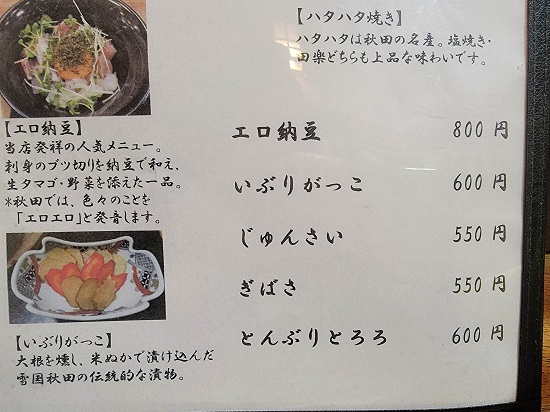 【ハタハタ焼き】
ハタハタは秋田の名産。塩焼き・
田楽どちらも上品な味わいです。
【エロ納豆】
当店発祥の人気メニュー。
刺身のブツ切りを納豆で和え、
生タマゴ・野菜を添えた一品。
*秋田では、色々のことを
「エロエロ」と発音します。
【いぶりがっこ】
大根を燻し、米ぬかで漬け込んだ
雪国秋田の伝統的な漬物。
エロ納豆 800円
いぶりがっこ 600円
じゅんさい 550円
ぎばさ 550円
とんぶりとろろ 600円